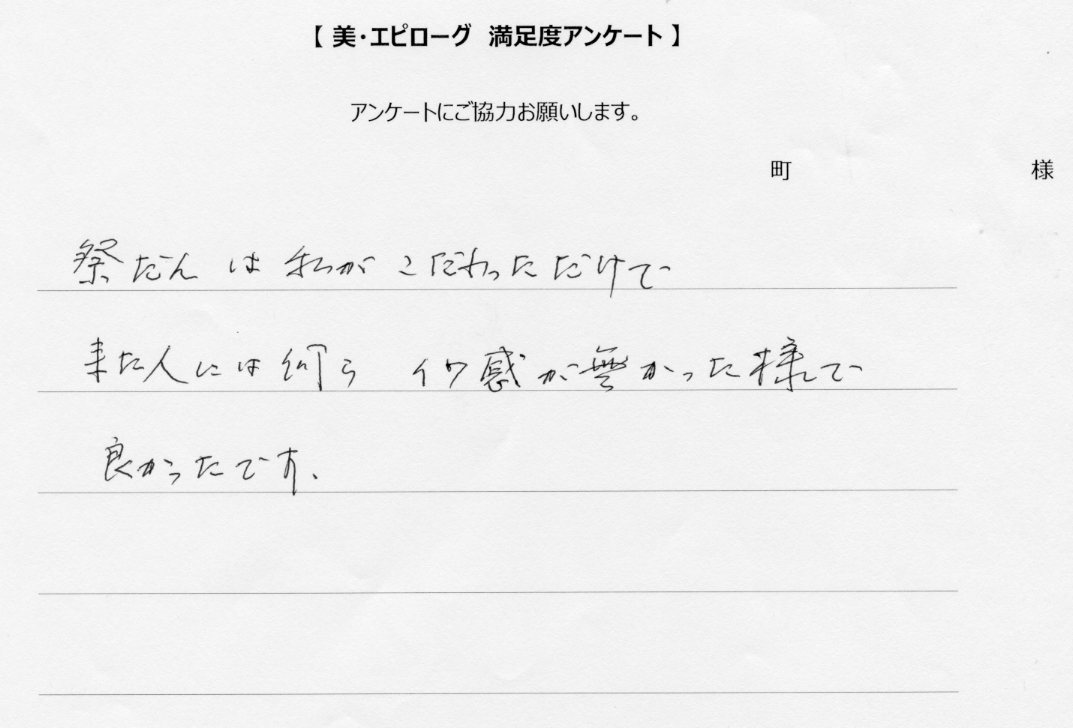 【 美・エピローグ 満足度アンケート 】
アンケートにご協力お願いします。
町 様
祭だんは私がこだわっただけで
来た人には何ら イワ感が無かった様で
良かったです.